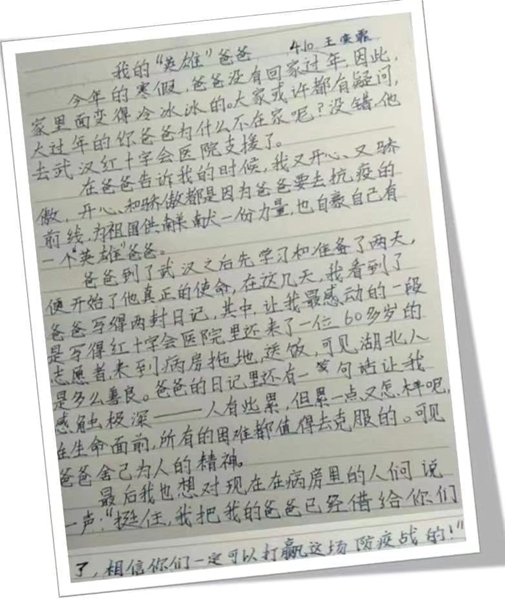 我的“英雄”爸爸 4.10 王奕霏
今年的寒假,爸爸没有回家过年,因此,
家里面变得冷冰冰的。大家或许都有疑问,
大过年的你爸爸为什么不在家呢?没错,他
去武汉红十字会医院支援了。
在爸爸告诉我的时候,我又开心、又骄
傲,开心、和骄傲都是因为爸爸要去抗疫的
前线,为祖国供献一份力量,也自豪自己有
一个“英雄”爸爸。
爸爸到了武汉之后先学习和准备了两天,
便开始了他真正的使命,在这几天,我看到了
爸爸写得两封日记,其中,让我最感动的一段
是写得红十字会医院里还来了一位60多岁的
志愿者,来到病房拖地,送饭,可见湖北人
是多么善良。爸爸的日记里还有一句话让我
感触极深——人有些累,但累一点又怎样吧,
在生命面前,所有的困难都值得去克服的。可见
爸爸舍己为人的精神。
最后我也想对现在在病房里的人们说
一声:“挺住,我把我的爸爸已经借给你们
了,相信你们一定可以打赢这场防疫战的!”